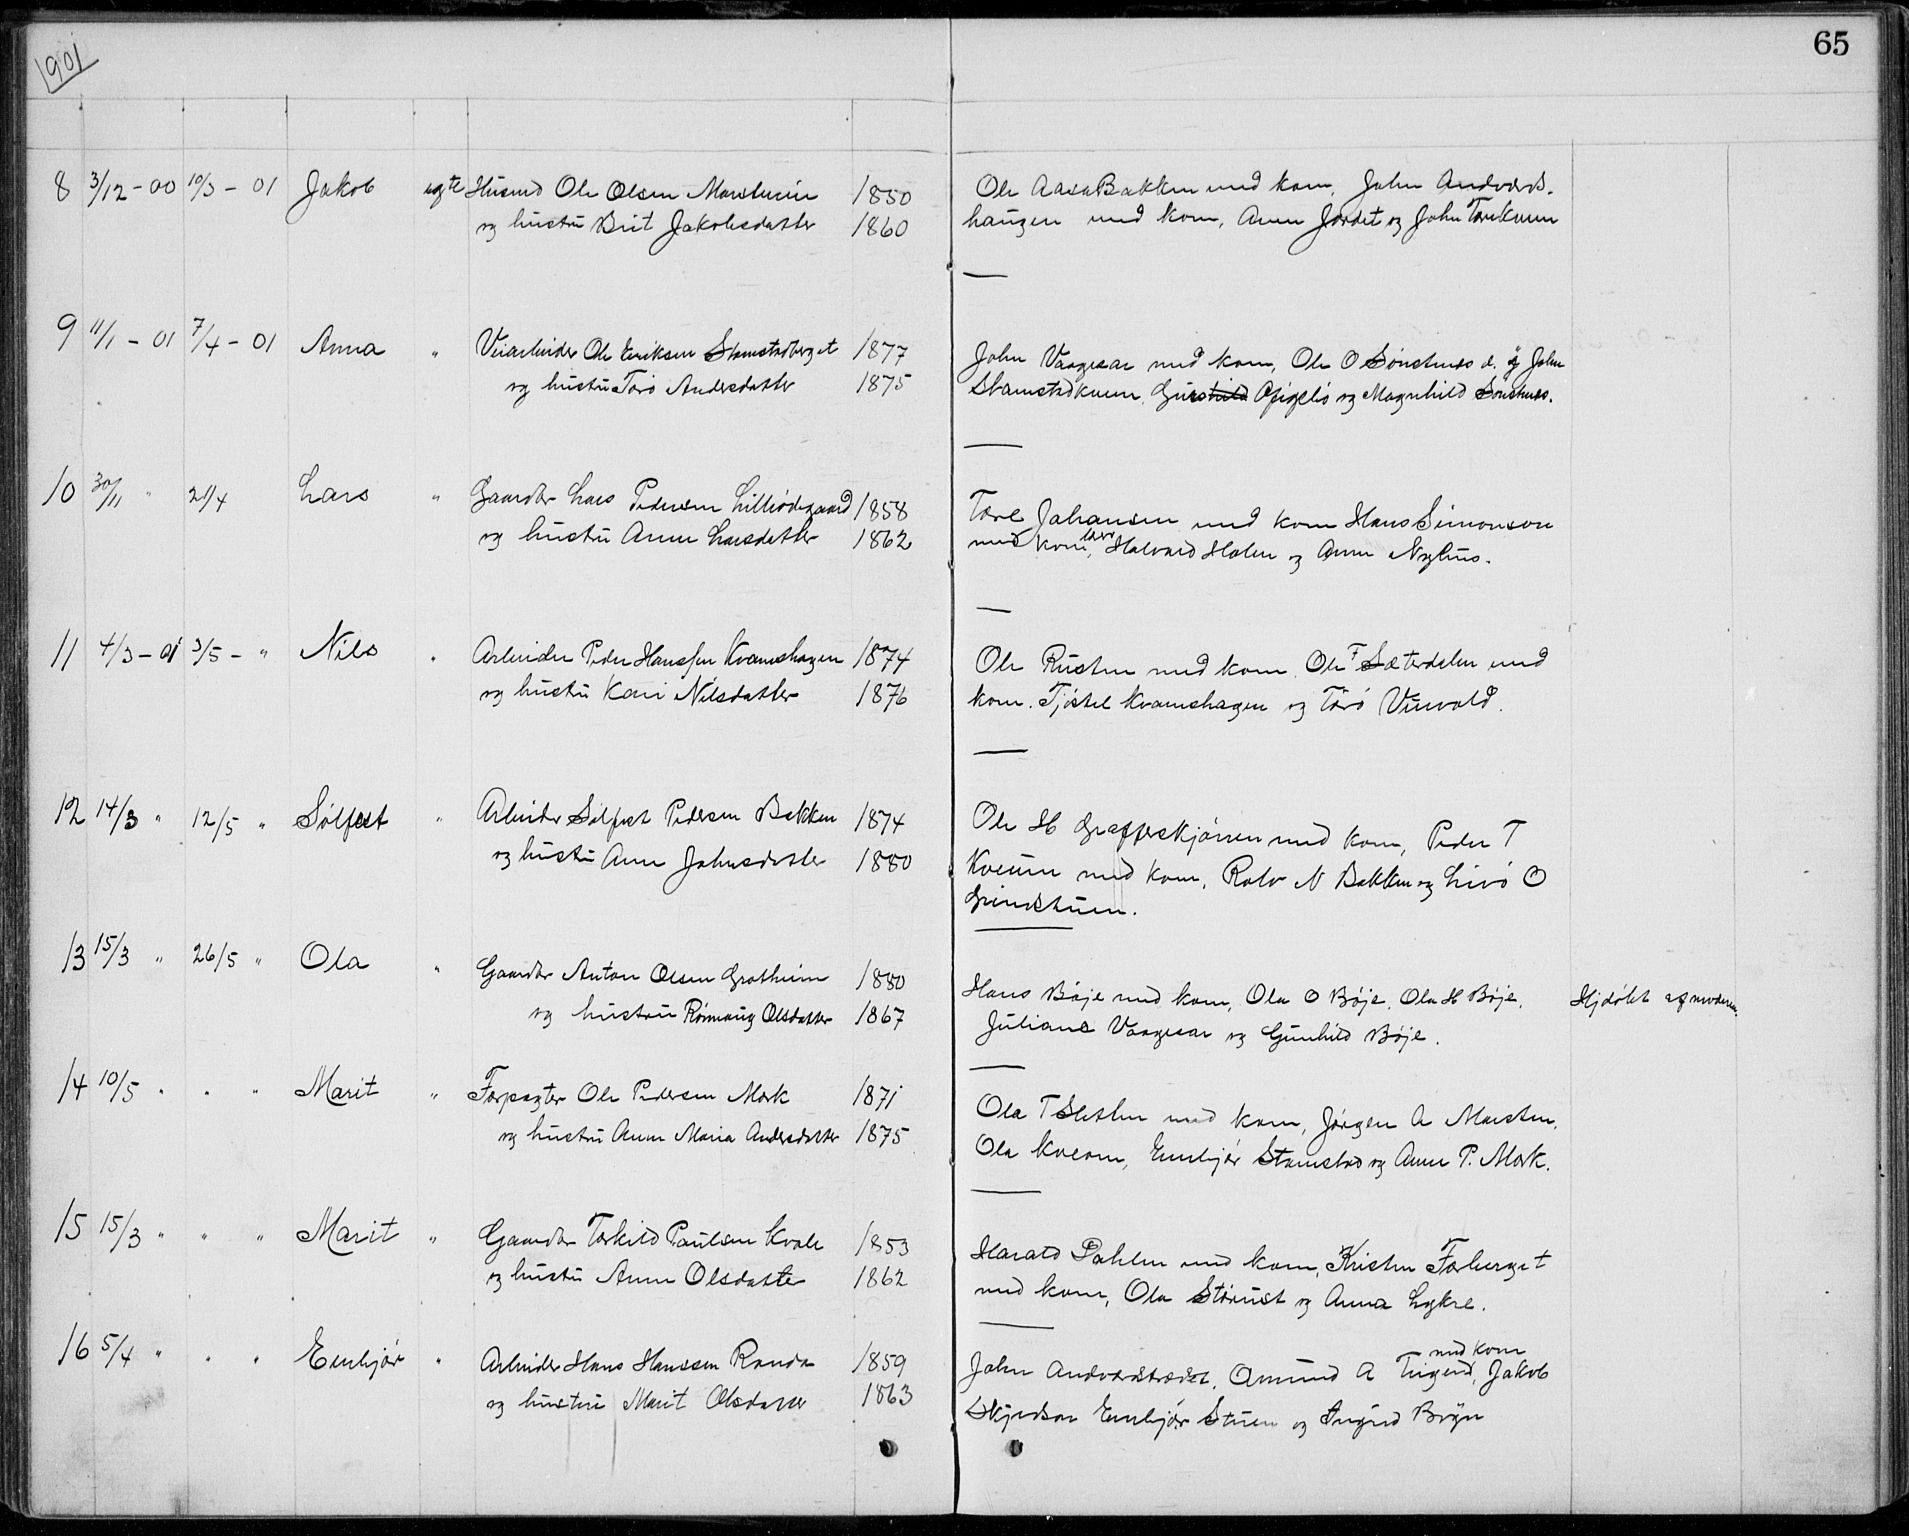 1901
65
8 3/12-00 10/3-01 Jakob ægte Husmd Ole Olsen Marstuein 1850
og hustru Brit Jakobsdatter 1860
Ole Aasabakken med kone, John Andvords-
haugen med kone, Anne Jordet og John
9 11/1-01 7/4-01 Anna " Veiarbeider Ole Eriksen Skamstadberget 1877
og hustru Torø Andersdatter 1875
John Vangesar med kone, Ole O Sønstnes d. y John
Skamstadkvern, og Magnhild Sønstnes.
10 30/11 " 21/4 Lars " Gaardbr Lars Pedersen Lilleødegaard 1858
og hustru Anne Larsdatter 1862
Tore Johansen med kone Hans Simonson
med kone, Halvard Holen og Anne Nyhus.
11 4/3-01 3/5-" Nils " Arbeider Peder Hanssen Kvamshagen 1874
og hustru Kari Nilsdatter 1876
Ole Rusten med kone. Ole F Sæterdalen med
kone. Tjøstel Kvamshagen og Torø Veivold.
12 14/3 " 12/5 " Sølfest " Arbeider Sølfest Pedersen Bakken 1874
og hustru Anne Johnsdatter 1880
Ole H Græffeskjørren med kone, Peder T
Kveum med kone, Rolv N Bakken og Livø O
Grindstuen.
13 15/3 " 26/5 " Ola " Gaardbr Anton Olsen Grotheim 1880
og hustru Rønnaug Olsdatter 1867
Hans Bøje med kone, Ola O Bøje, Ola H Bøje,
Juliane Vangesar og Gunhild Bøje.
Hjdøbt af moderen.
14 10/5 " " " Marit " Forpagter Ole Pedersen Mork 1871
og hustru Anne Maria Andersdatter 1875
Ola T Sletten med kone, Jørgen A Marsten,
Ola Kveom, Embjør Skamstad og Anne P. Mork.
15 15/3 " " " Marit " Gaardbr Torkild Paulsen Kvale 1853
og hustru Anne Olsdatter 1862
Harald Dahlen med kone, Kristen Forberget
med kone, Ola Størust og Anna Lykre.
16 5/4 " " " Embjør " Arbeider Hans Hanssen Randa 1859
og hustru Marit Olsdatter 1863
med kone
John Andvordstrædet, Amund A Jakob
Embjør Stuen og Ingrid Bøyn